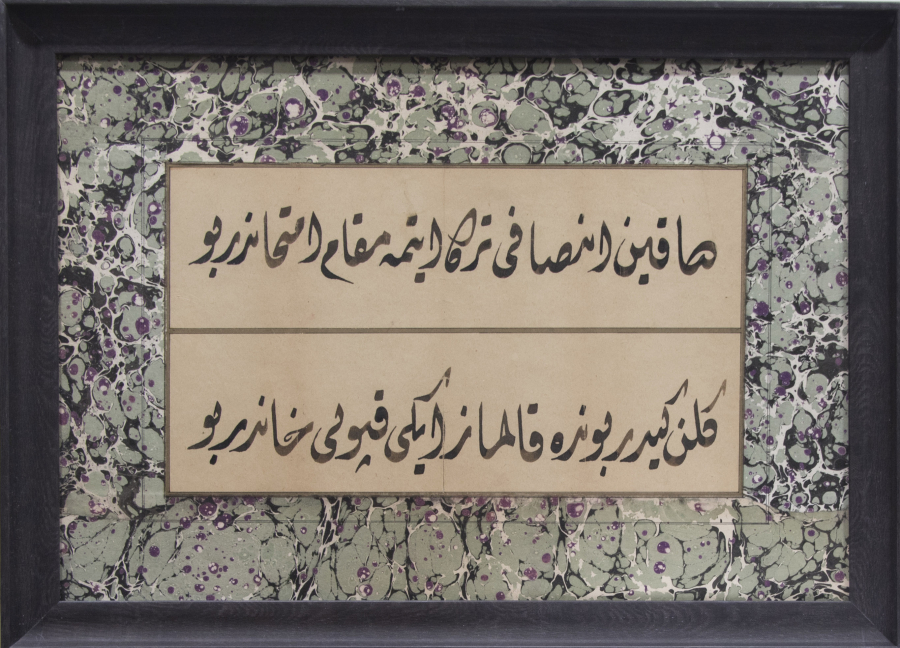 صاقین انصافی ترك ایتمه مقام امتحاندر بو
كلن كیدر بونده قالماز ایكی قپولی خاندر بو